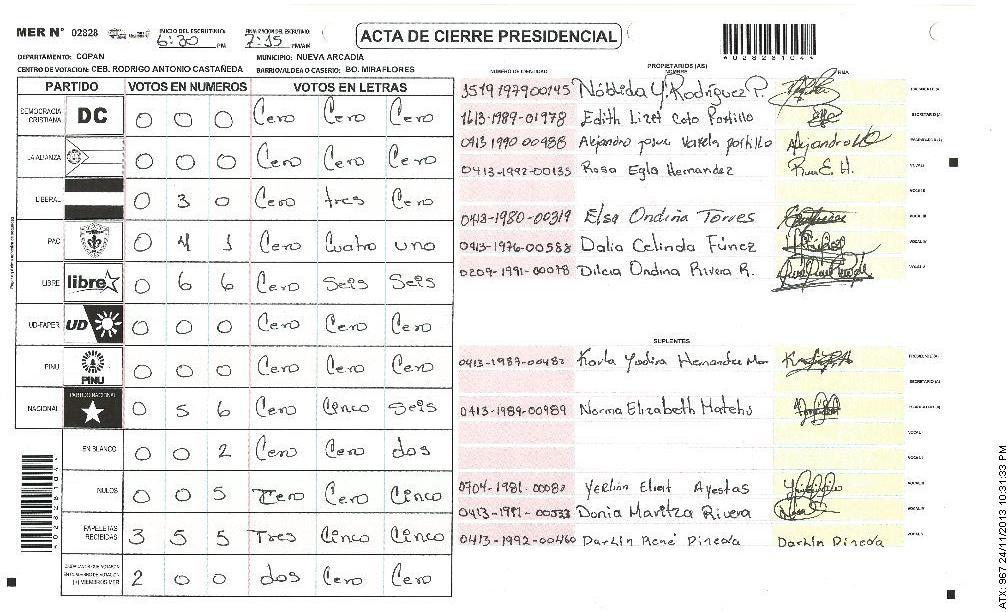 MER N° 02828 INICIO DEL ESCRUTINIO: 6:30 PM FINALIZACION DEL ESCRUTINIO: 7:15 PM/AM
ACTA DE CIERRE PRESIDENCIAL
*028281044*
DEPARTAMENTO: COPAN MUNICIPIO: NUEVA ARCADIA
CENTRO DE VOTACION: CEB. RODRIGO ANTONIO CASTAÑEDA BARRIO/ALDEA O CASERIO: BO. MIRAFLORES
PARTIDO VOTOS EN NUMEROS VOTOS EN LETRAS
DEMOCRACIA CRISTIANA DC 0 0 0 Cero Cero Cero
LA ALIANZA 0 0 0 Cero Cero Cero
LIBERAL 0 3 0 Cero tres Cero
PAC 0 4 1 Cero Cuatro uno
LIBRE libre 0 6 6 Cero Seis Seis
UD-FAPER UD 0 0 0 Cero Cero Cero
PINU PINU 0 0 0 Cero Cero Cero
NACIONAL PARTIDO NACIONAL 0 5 6 Cero Cinco Seis
EN BLANCO 0 0 2 Cero Cero dos
NULOS 0 0 5 Cero Cero Cinco
PAPELETAS RECIBIDAS 3 5 5 Tres Cinco Cinco
2 0 0 dos Cero Cero
NUMERO DE IDENTIDAD PROPIETARIOS (AS) NOMBRE FIRMA
1519197900145 Rodríguez P.
1613-1989-01978 Edith Lizet Coto Portillo
0413 1990 00988 Alejandro josue Varela portillo
0413-1992-00135 Rosa Egla Hernandez Rosa E. H.
0413-1980-00319 Elsa Ondina Torres
0413-1976-00588 Dalia Celinda Fúnez
0209-1991-00078 Dilcia Ondina Rivera R.
SUPLENTES
Karla Yadira Hernandez
0413-1989-00989 Norma Elizabeth
Ayestas
Donia Maritza Rivera
0413-1992-00460 Darlin René Pineda Darlin Pineda
ATX: 967 24/11/2013 10:31:33 PM